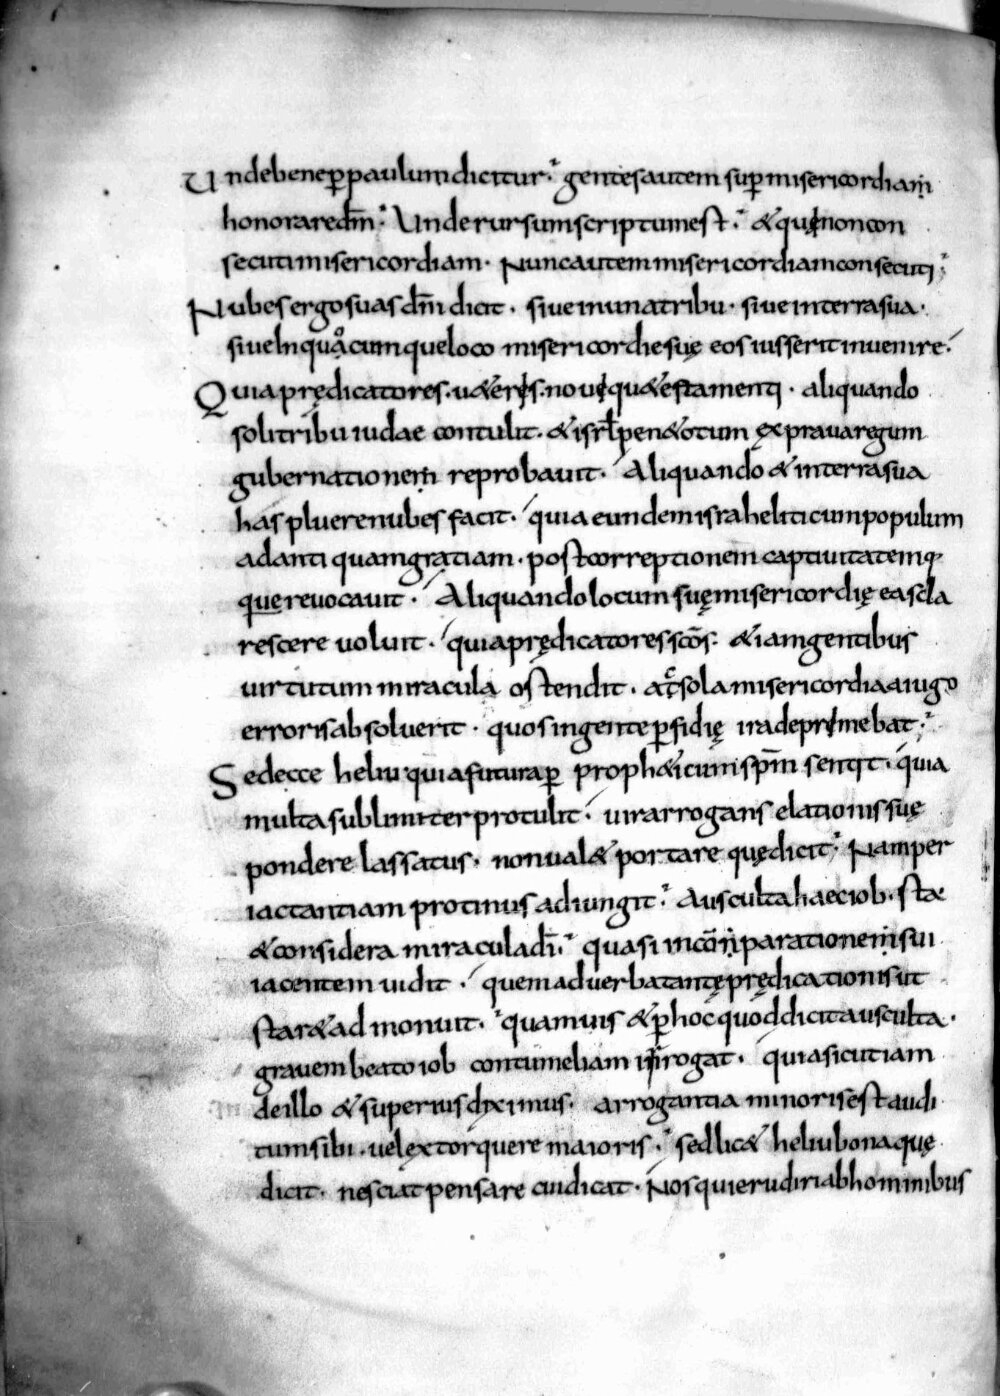 Undebene ꝑpaulum dicitur· gentes autem suꝑ misericordiam
honorare dm̅· Unde rursum scriptum est· & quę non con
secuti misericordiam· Nunc autem misericordiam consecuti·
Nubes ergo suas dm̅ dicit· siue in una tribu· siue in terra sua·
siue In quocumque loco misericordie suę eos iusserit inuenire·
Quia prędicatores· u&eris· nouiqu&estamenti· aliquando
soli tribu iudae contulit· & isrl̅ pen&otum ex praua regum
gubernationem reprobauit· Aliquando & in terra sua
has pluere nubes facit· quia eundem israheliticum populum
ad antiquam gratiam· post correptionem captiuitatemq·
que reuocauit· Aliquando locum suę misericordię eas cla
rescere uoluit· quia prędicatores sco̅s· & iam gentibus
uirtutum miracula ostendit· at sola misericordia a iugo
erroris absoluerit· quos ingente ꝑfidię ira deprimebat·
Sed ecce heliu· quia futura ꝑ proph&icum sp̅m sentit· quia
multa sublimiter protulit· uir arrogans elationis suę
pondere lassatus· non ual& portare quę dicit· Nam per
iactantiam protinus adiungit· Ausculta haec iob· sta
& considera miracula di̅· quasi in co̅parationem sui
iacentem uidit· quem ad uerba tantę prędicationis ut
star& ad monuit· quamuis & ꝑ hoc quod dicit ausculta·
grauem beato iob contumeliam irrogat· quia sicut iam
de illo & superius diximus· arrogantia minoris est audi
tum sibi· uel extorquere maioris· sed lic& heliu bona quę
dicit· nesciat pensare cui dicat· Nos qui erudiri ab hominibus